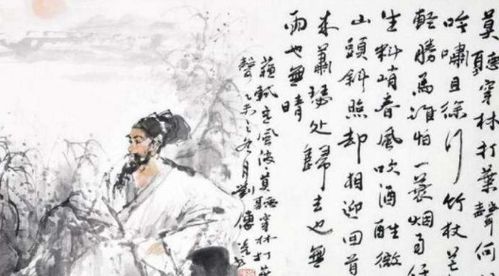 莫聽穿林打葉聲何
吟嘯且徐行竹杖芒
輕勝馬誰怕一蓑烟雨
生料峭春風吹酒醒微
山頭斜照却相迎回首
来蕭瑟處歸去也無
雨也無晴
蘇軾定風波莫聽穿林打葉
聲乙未之九月劉